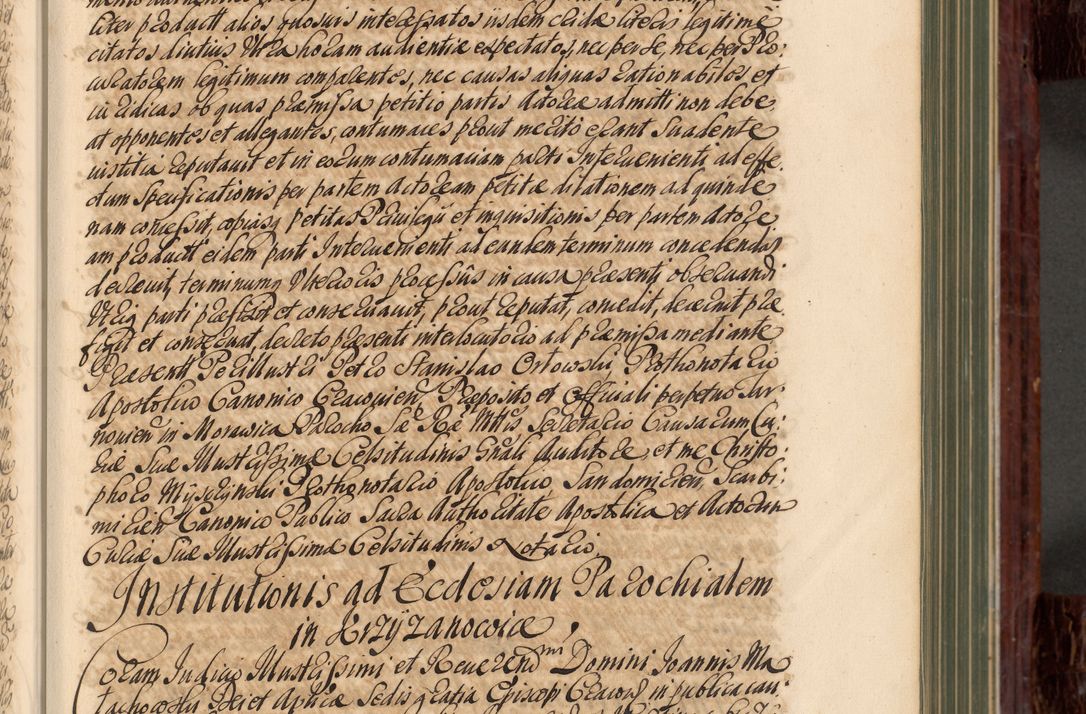 liter producti alios quosvis interessatos iisdem eisdē literis legitimè
citatos diutius Ultra horam audientiæ expectatos, nec per se nec per Pro:
curatorem legitimum comparentes, nec causas aliquas rationabiles et
iuridicas ob quas præmissa petitio partis Actoreæ admitti non debe
at opponentes et allegantes, contumaces prout meritò erant Suadente
iustitia reputavit et in eorum contumaciam parti Intervenienti ad effe:
ctum Specificationis per partem Actoream petitæ dilationem ad quinde
nam concessit, copiasq petitas Privilegii et inquisitionis per partem Actore
am producti eidem parti Intervenienti ad eandem terminum concedendas
decrevit, terminumq Ulterioris processûs in causa præsenti observandi
Utriq parti præfixit et conservavit, prout reputat, concedit, decernit præ
figit et conservat, decreto præsenti interlocutorio ad præmissa mediante
Præsentt Perillustri Petro Stanislao Orłowski, Prothonotario
Apostolico Canonico Cracovien, Præposito et Officiali perpetuo Tar
novien in Morawica Parocho Sæ Ræ Mttis Secretario Causarum Cu:
riæ Suæ Illustrissimæ Celsitudinis Gnrali Auditore, et me Christo:
phoro Myszyński Prothonotario Apostolico, Sandomirien, Scarbi:
mirien Canonico Publico Sacra Authoritate Apostolica et Actorum
Curiæ Suæ Illustrissimæ Celsitudinis Notario,
Institutionis ad Ecclesiam Parochialem
in Krzyżanowice.
Coram Iudicio Illustrissimi et Reverendmi Domini Ioannis Ma
łachowski Dei et Apticæ Sedis gratia Episcopi Cracovi in publica cau: